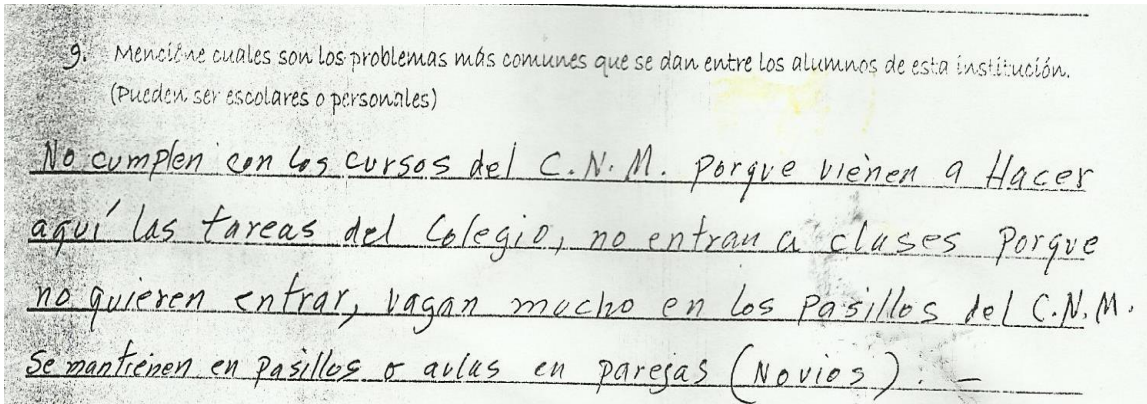 9. Mencione cuales son los problemas más comunes que se dan entre los alumnos de esta institución.
(Pueden ser escolares o personales)
No cumplen con los cursos del C.N.M. porque vienen a Hacer
aquí las tareas del Colegio, no entran a clases porque
no quieren entrar, vagan mucho en los pasillos del C.N.M.
Se mantienen en pasillos o aulas en parejas (Novios). –